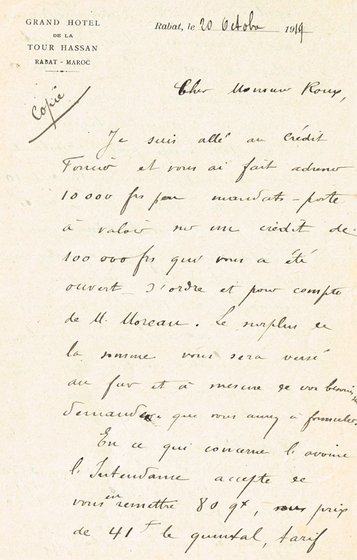 GRAND HOTEL
DE LA
TOUR HASSAN
RABAT - MAROC
Rabat, le 20 Octobre 1919
Copie
Cher Monsieur Roux,
Je suis allé au Crédit
Foncier et vous ai fait adresser
10 000 frs par mandats-poste
à valoir sur un crédit de
100 000 frs qui vous a été
ouvert d'ordre et pour compte
de M. Moreau. Le surplus de
la somme vous sera versé
au fur et à mesure de vos besoins
demandes que vous aurez à formuler
En ce qui concerne l'avoine
l'Intendance accepte de
vous en remettre 80 qx, prix
de 41f le quintal, tarif